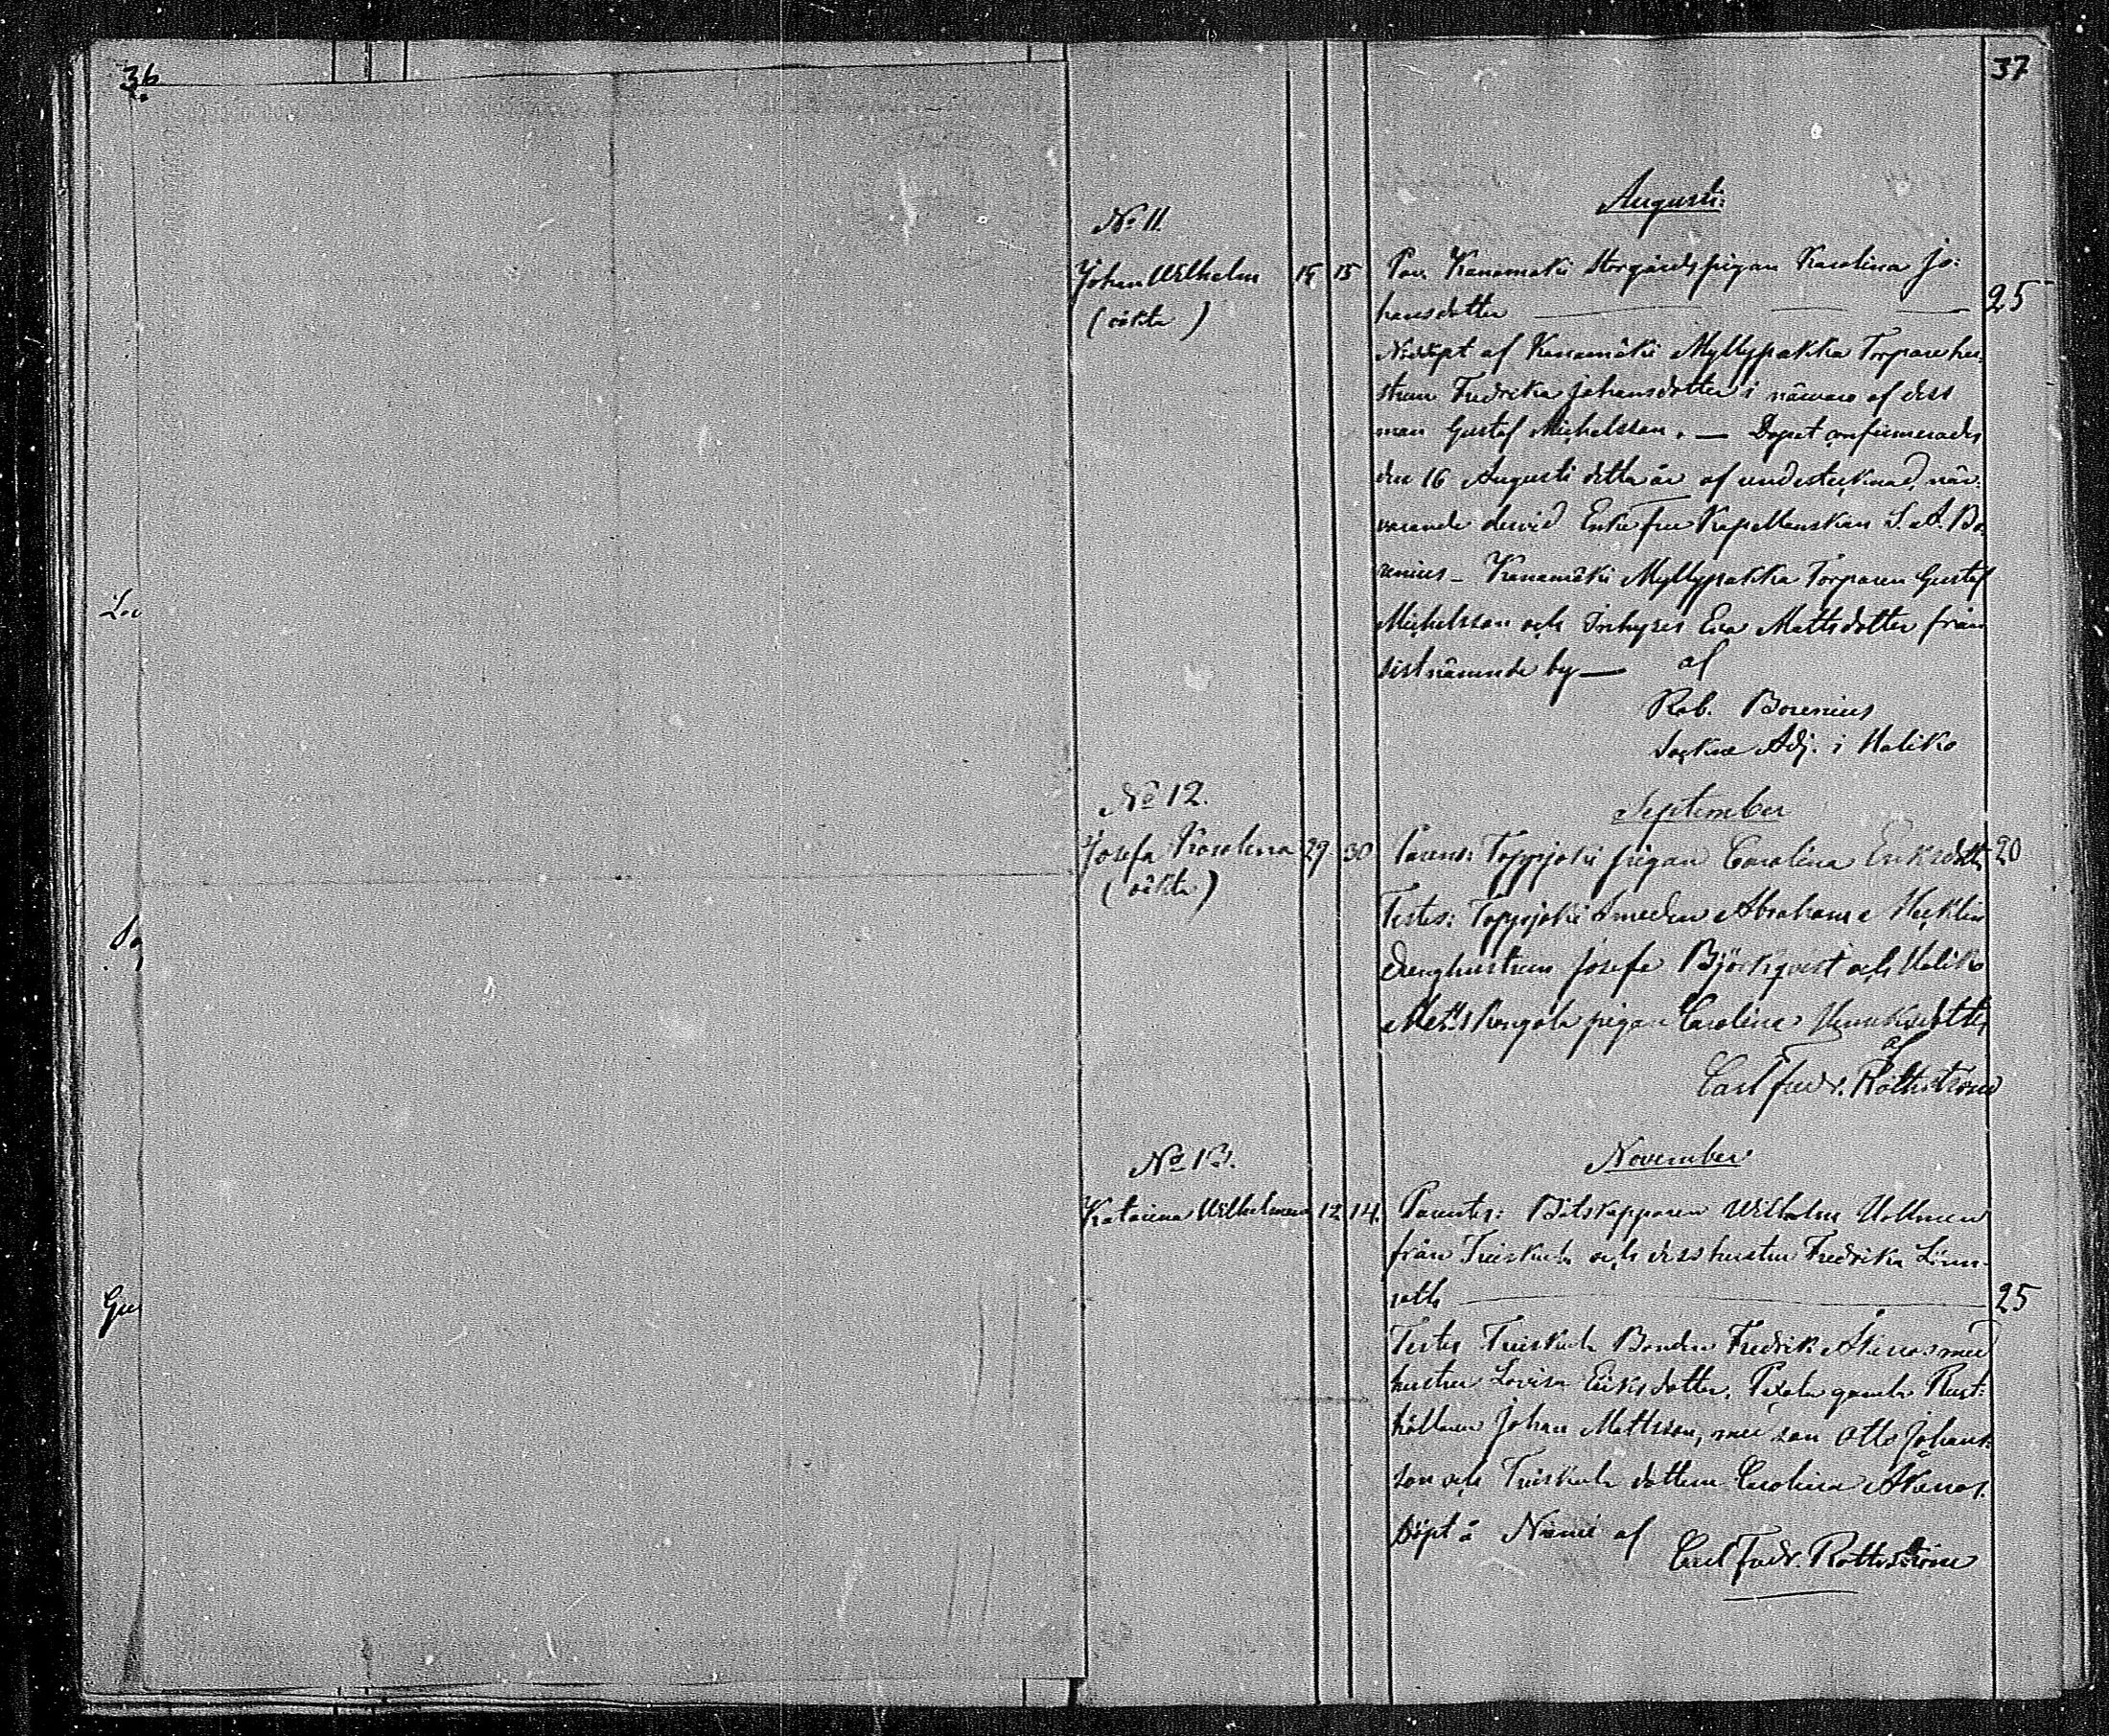 36.
37
Augusti.
No 11.
Johan Wilhelm 15 15 Par. Kanamäki Storgårdspigan Karolina Jo-
(oäkta) hansdotter 25
Nöddöpt af Kanamäki Myllypakka Torparehu-
strun Fredrika Johansdotter i närvaro af dess
man Gustaf Michelsson. — Dopet confirmerades
den 16 Augusti detta år af undertecknad, när-
varande dervid Enke Fru Kapellanskan S. A. Bo-
renius — Kanamäki Myllypakka Torparen Gustaf
Michelsson och Inhyses Eva Mattsdotter från
sistnämnde by — af
Rob. Borenius
Sockne Adj. i Haliko
No 12.
September
Josefa Karolina 29 30 Parens: Toppjoki pigan Carolina Eriksdott. 20
(oäkta)
Testes: Toppjoki Smeden Abraham
Drenghustrun Josefa Björkqvist och Haliko
pigan Carolina Henriksdotter
af
Carl Fredr. Rothström
No 13.
November
Katarina Wilhelmina 12 14. Parentes: Båtskepparen Wilhelm Hollmen
från och dess hustru Fredrika Lönn-
roth 25
Testes Bonden Fredrik med
hustru Lovisa Eriksdotter, gamla Rust-
hållaren Johan Mattsson, med son Otto Johans-
son och dottern Carolina
Döpt å Niemi af
Carl Fredr. Rothström
Lov
Gu